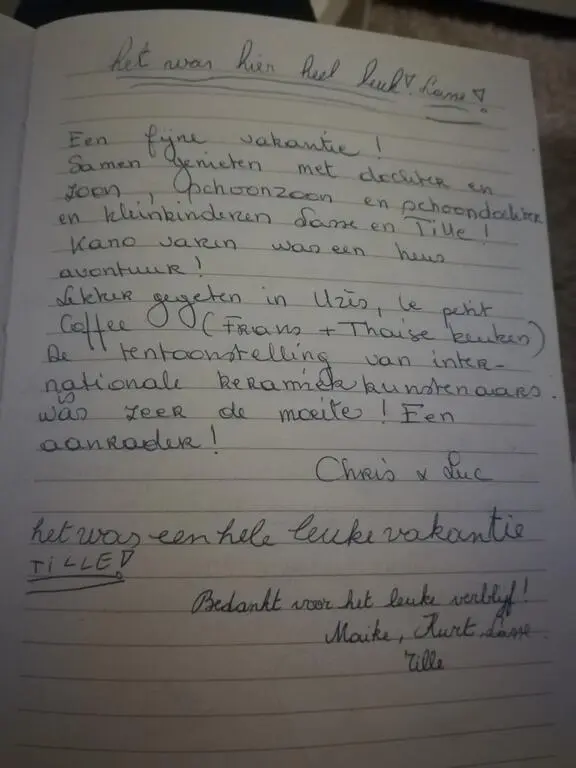 het was hier heel leuk! Lasse!
Een fijne vakantie!
Samen genieten met dochter en
zoon, schoonzoon en schoondochter
en kleinkinderen Lasse en Tille!
Kano varen was een heus
avontuur!
Lekker gegeten in Uzès, le petit
Coffee (Frans + Thaise keuken)
De tentoonstelling van inter-
nationale keramiek kunstenaars.
was zeer de moeite! Een
aanrader!
Chris & Luc
het was een hele leuke vakantie
TILLE!
Bedankt voor het leuke verblijf!
Maike, Kurt, Lasse
Tille